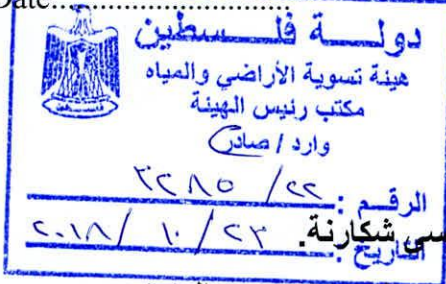 Date:
دولة فلسطين
هيئة تسوية الأراضي والمياه
مكتب رئيس الهيئة
وارد / صادر
الرقم : ٢٢/ ٣٢٨٥
التاريخ : ٢٣/ ١٠/ ٢٠١٨
سى شكارنة.